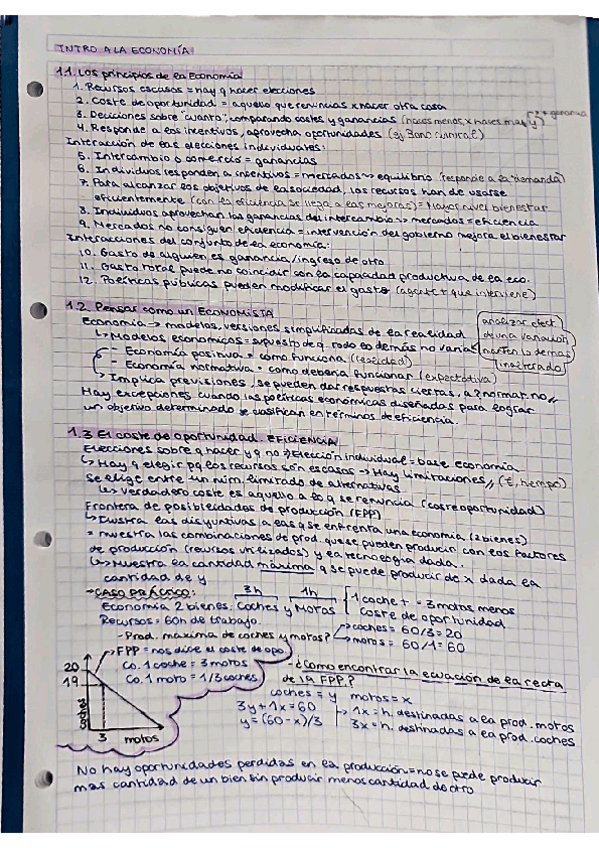 INTRO A LA ECONOMÍA
1.1. Los principios de la Economía
1. Recursos escasos = hay q hacer elecciones
2. Coste de oportunidad = aquello que renuncias x hacer otra cosa
3. Decisiones sobre "cuanto", comparando costes y ganancias (haces menos x haces mas y) → + ganancia
4. Responde a los incentivos, aprovecha oportunidades (ej Bono
Interacción de las elecciones individuales:
5. Intercambio o comercio = ganancias
6. Individuos responden a incentivos = mercados → equilibrio (responde a la demanda)
7. Para alcanzar los objetivos de la sociedad, los recursos han de usarse
eficientemente (con la eficiencia se llega a las mejoras) = Mayor nivel bienestar
8. Individuos aprovechan las ganancias del intercambio → mercados = eficiencia
9. Mercados no consiguen eficiencia = intervención del gobierno mejora el bienestar
Interacciones del conjunto de la economía:
10. Gasto de alguien es ganancia/ingreso de otro
11. Gasto total puede no coincidir con la capacidad productiva de la eco.
12. Políticas públicas pueden modificar el gasto (agente + que interviene)
1.2. Pensar como un ECONOMISTA
Economía → modelos, versiones simplificadas de la realidad
↳ Modelos económicos = supuesto de q todo lo demás no varía
analizar efect.
de una variación
manten. lo demas
inalterado
- Economía positiva = como funciona (realidad)
- Economía normativa = como debería funcionar (expectativa)
↳ Implica previsiones, se pueden dar respuestas ciertas, a? normat. no //
Hay excepciones cuando las políticas económicas diseñadas para lograr
un objetivo determinado se clasifican en términos de eficiencia.
1.3 El coste de oportunidad. EFICIENCIA
Elecciones sobre q hacer y q no → Elección individual = base economía
↳ Hay q elegir pq los recursos son escasos → Hay limitaciones // (€, tiempo)
Se elige entre un núm. limitado de alternativas
↳ Verdadero coste es aquello a lo q se renuncia (coste oportunidad)
Frontera de posibilidades de producción (FPP)
↳ Ilustra las disyuntivas a las q se enfrenta una economía (2 bienes)
= muestra las combinaciones de prod. que se pueden producir con los factores
de producción (recursos utilizados) y la tecnología dada.
↳ Muestra la cantidad máxima q se puede producir de x dada la
cantidad de y
→ CASO PRÁCTICO: 3h 1h
Economía 2 bienes: Coches y Motos
1 coche + = 3 motos menos
coste de oportunidad
Recursos = 60h de trabajo.
- Prod. maxima de coches y motos? → coches = 60/3 = 20
→ motos = 60/1 = 60
FPP = nos dice el coste de opo
Co. 1 coche = 3 motos
Co. 1 moto = 1/3 coches
20
19
coches
3 motos
- ¿Como encontrar la ecuación de la recta
de la FPP?
coches = y motos = x
3y + 1x = 60
y = (60 - x)/3
1x = h. destinadas a la prod. motos
3x = h. destinadas a la prod. coches
No hay oportunidades perdidas en la producción = no se puede producir
mas cantidad de un bien sin producir menos cantidad de otro